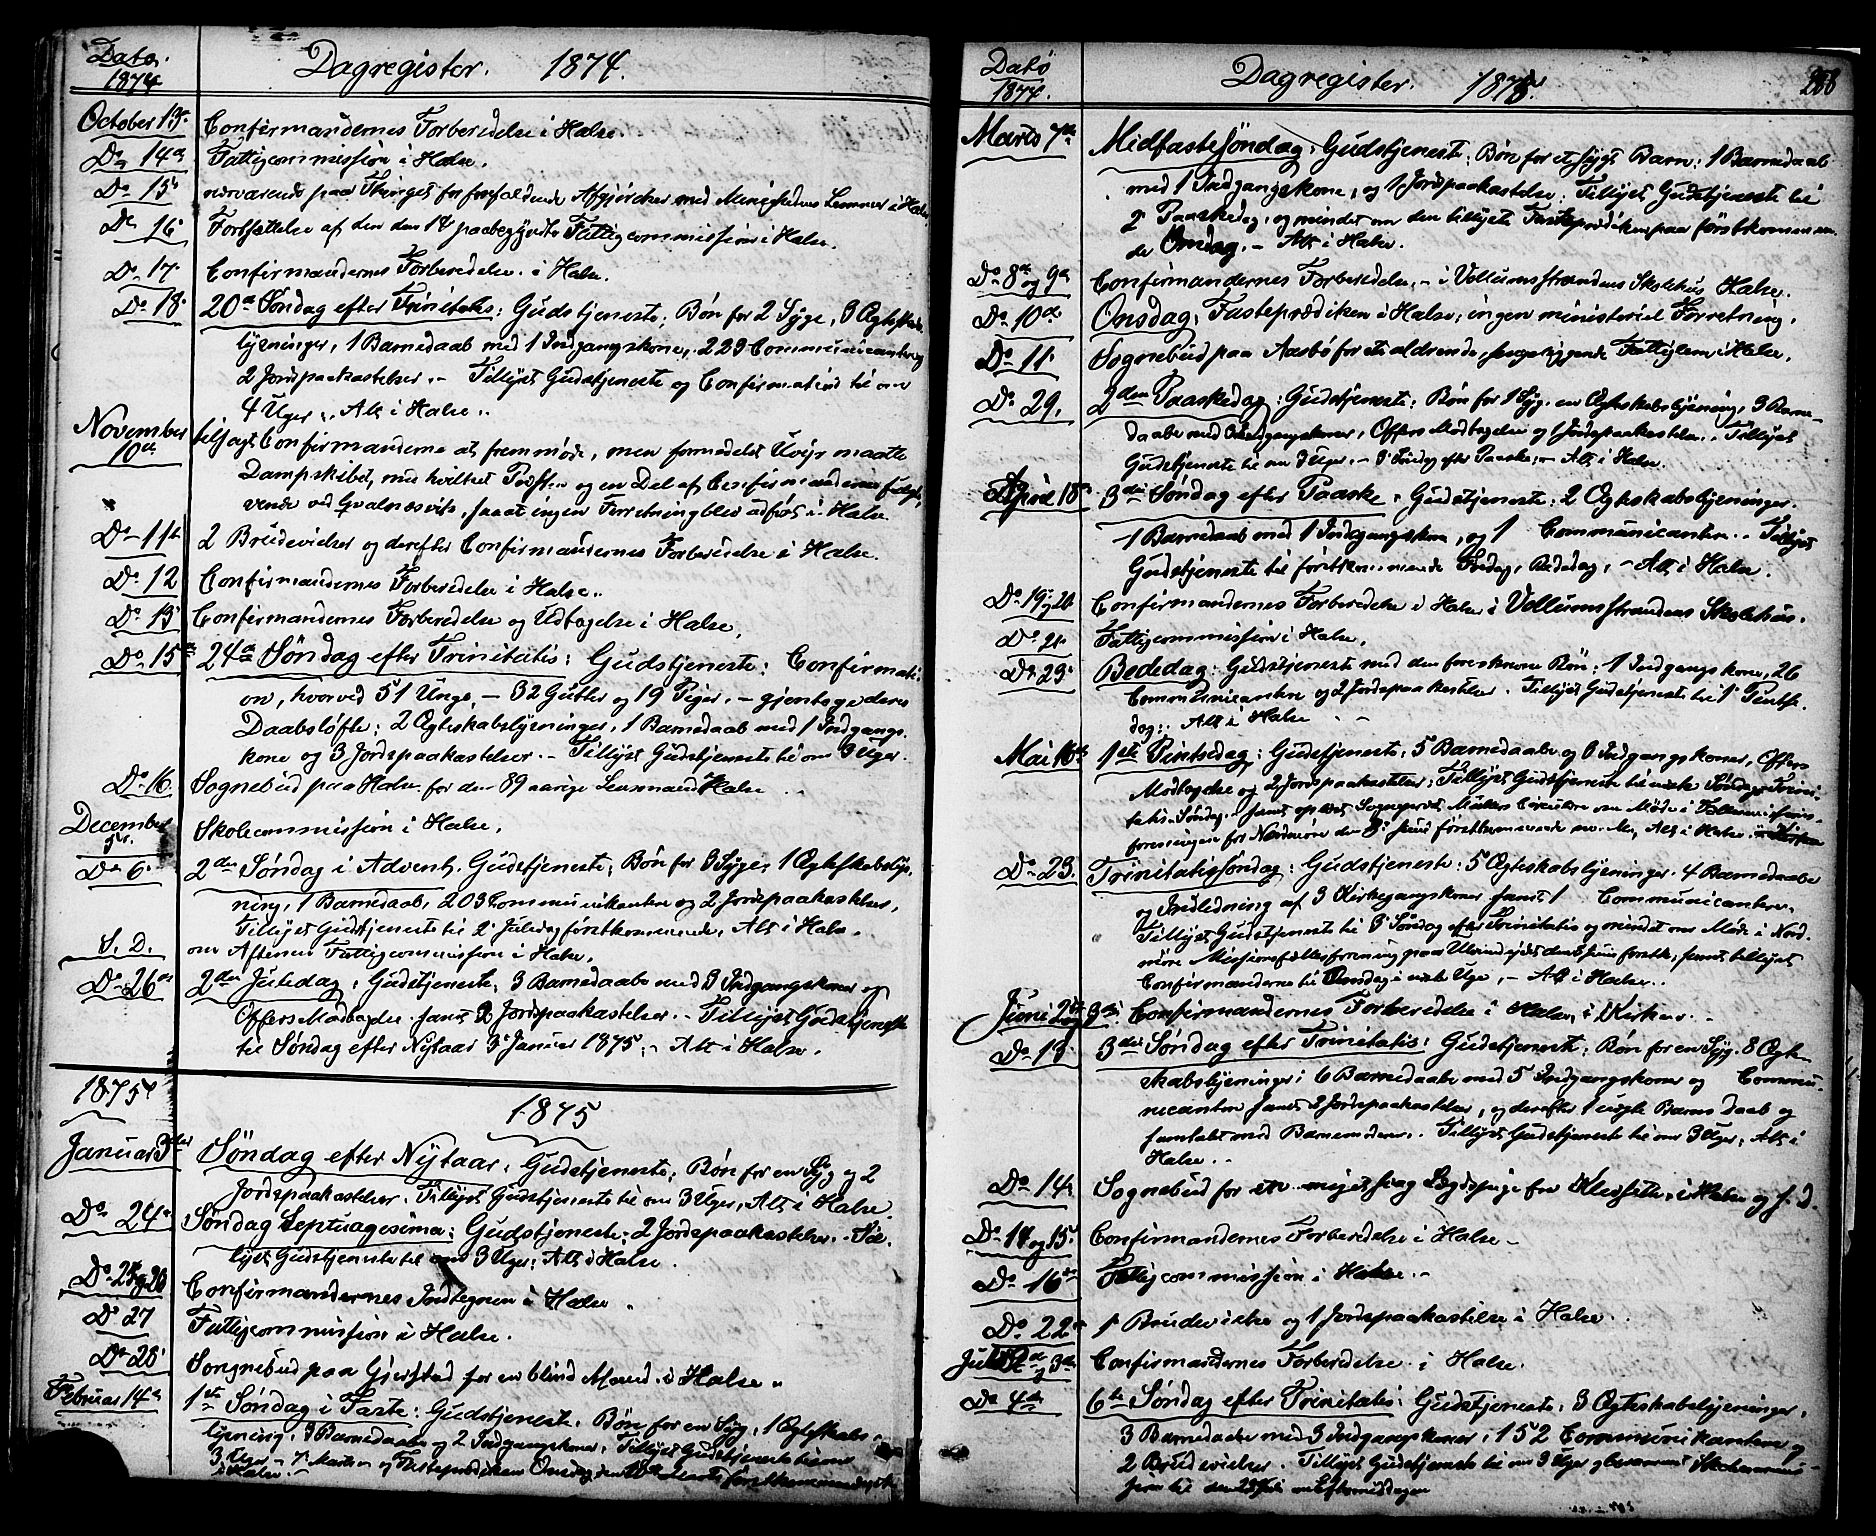 Dato.
1874
Dagregister. 1874.
October 13. Confirmandernes Forberedelse i Halse.
Do 14de Fattigcommission i Halse.
Do 15 nærværende paa Thinget for forefaldende Afgjørelser med Menighedens Lemmer i Halse
Do 16 Fortsættelse af den den 14 paabegyndte Fattigcommission i Halse.
Do 17. Confirmandernes Forberedelse. i Halse.
Do 18. 20de Søndag efter Trinitatis: Gudstjeneste; Bøn for 2 Syge, 3 Ægteskabs
lysninger, 1 Barnedaab med 1 Indgangskone, 223 Communicantere og
2 Jordspaakastelser. - Tillyst Gudstjeneste og Confirmation til om
4 Uger. Alt i Halse.
November
10de tilsagt Confirmanderne at fremmøde, men formedelst Uveir maatte
Dampskibet, med hvilket Præsten og en Del af Confirmanderne fulgte,
vende ved Qvalnæsvik, saa at ingen Forretning blev udført i Halse
Do 11te 2 Brudevielser og derefter Confirmandernes Forberedelse i Halse.
Do 12 Confirmandernes Forberedelse i Halse.
Do 13 Confirmandernes Forberedelse og Udtagelse i Halse.
Do 15de 24de Søndag efter Trinitatis: Gudstjeneste: Confirmati-
on, hvorved 51 Unge, - 32 Gutter og 19 Piger, - gjentoge deres
Daabsløfte: 2 Ægteskabslysninger, 1 Barnedaab med 1 Indgangs
kone og 3 Jordspaakastelser. - Tillyst Gudstjeneste til om 3 Uger.
Do 16. Sognebud paa Halse for den 89 aarige Lensmand Halse
December
5te. Skolecommission i Halse.
Do 6. 2den Søndag i Advent, Gudstjeneste; Bøn for 3 Syge; 1 Ægteskabslys-
ning, 1 Barnedaab, 203 Communikantere og 2 Jordspaakastelser,
Tillyst Gudstjeneste til 2. Juledag førstkommende. Alt i Halse.
S. D. om Aftenen Fattigcommission i Halse.
Do 26de 2den Juledag: Gudstjeneste, 3 Barnedaabe med 3 Indgangskoner og
Offers Modtagelse samt 2 Jordspaakastelser. - Tillyst Gudstjeneste
til Søndag efter Nytaar 3. Januar 1875. - Alt i Halse.
1875
1875
Januar 3die Søndag efter Nytaar: Gudstjeneste; Bøn for en Syg og 2
Jordspaakastelser. Tillyst Gudstjeneste til om 3 Uger, Alt i Halse.
Do 24de Søndag Septuagesima: Gudstjeneste: 2 Jordspaakastelser. - Til-
lyst Gudstjeneste til om 3 Uger: Alt i Halse.
Confirmandernes Indtegnen i Halse.
Do 27 Fattigcommission i Halse.
Do 28 Songnebud paa Gjerstad for en blind Mand. i Halse.
Februar 14de 1ste Søndag i Faste: Gudstjeneste. Bøn for en Syg, 1 Ægteskabs-
lysning, 3 Barnedaabe og 2 Indgangskoner; Tillyst Gudstjeneste til om
3 Uger - 7. Marts - og Fasteprædiken Onsdag den 10de Marts førstkommende
i Halse.
Dato
1874.
Dagregister. 1875.
288
Marts 7de Midfastesøndag: Gudstjeneste: Bøn for et sygt Barn: 1 Barnedaab
med 1 Indgangskone, og 1 Jordspaakastelse: Tillyst Gudstjeneste til
2. Paaskedag, og mindet om den tillyste Fasteprædiken paa førstkommen
de Onsdag. - Alt i Halse.
Do 8de og 9de Confirmandernes Forberedelse, - i Vollumsstrandens Skolehus Halse.
Do 10de Onsdag: Fasteprædiken i Halse; ingen ministeriel Forretning.
Do 11. Sognebud paa Aasbø for et aldrende, sengeliggende Fattiglem i Halse.
Do 29. 2den Paaskedag: Gudstjeneste: Bøn for 1 Syg. en Ægteskabslysning, 3 Barne-
daabe med Indgangskoner, Offers Modtagelse og 1 Jordspaakastelse. Tillyst
Gudstjeneste til om 3 Uger. - 3. Søndag efter Paaske, - Alt i Halse.
April 18. 3die Søndag efter Paaske: Gudstjeneste: 2 Ægteskabslysninger.
1 Barnedaab med 1 Indgangskone, og 1 Communicantere. Tillyst
Gudstjeneste til førstkommende Fredag, Bededag, - Alt i Halse.
Do 19. og 20. Confirmandernes Forberedelse i Halse i Vollumsstrandens Skolehus.
Do 21. Fattigcommission i Halse.
Do 23. Bededag: Gudstjeneste med den foreskrevne Bøn: 1 Indgangskone, 26
Communicantere og 2 Jordspaakastelser. Tillyst Gudstjeneste til 1. Pintse-
dag: Alt i Halse.
Mai 16de 1ste Pintsdag: Gudstjeneste: 5 Barnedaabe og Indgangskoner, Offers
Modtagelse og 2 Jordspaakastelser; Tillyst Gudstjeneste til næste Søndag Trini-
tatis-Søndag. Samt oplæst Sogneprest Møllers Circulære om Møde i
foreningen for Nordmøre den 3. Juni førstkommende. Alt i Halse
Do 23. Trinitatissøndag: Gudstjeneste: 5 Ægteskabslysninger. 4 Barnedaabe
og Indledning af 3 Kirkegangskoner samt 1 Communicantere.
Tillyst Gudstjeneste til 3. Søndag efter Trinitatis og mindet om Møde i Nord-
møre samt tillyst
Confirmanderne til Onsdag i næste Uge, - Alt i Halse.
Juni 2den og 3die Confirmandernes Forberedelse i Halse, i Kirken.
Do 13. 3die Søndag efter Trinitatis: Gudstjeneste; Bøn for en Syg. 8 Ægte-
skabslysninger; 6 Barnedaabe med 5 Indgangskoner og Commu-
nicantere samt 2 Jordspaakastelser, og derefter 1 uægte Barns Daab og
samtalt med Barnemoderen. Tillyst Gudstjeneste til om 3 Uger; Alt i
Halse.
Do 14. Sognebud for en meget svag i Halse og s. D.
Do 14 og 15. Confirmandernes Forberedelse i Halse.
Do 16de Fattigcommission i Halse.
Do 22 1 Brudevielse og 1 Jordspaakastelse i Halse.
Juli 2de og 3de Confirmandernes Forberedelse i Halse.
Do 4de 6te Søndag efter Trinitatis: Gudstjeneste: 3 Ægteskabslysninger,
3 Barnedaabe med 3 Indgangskoner, 152 Communikantere og
2 Brudevielser. Tillyst Gudstjeneste til om 3 Uger og